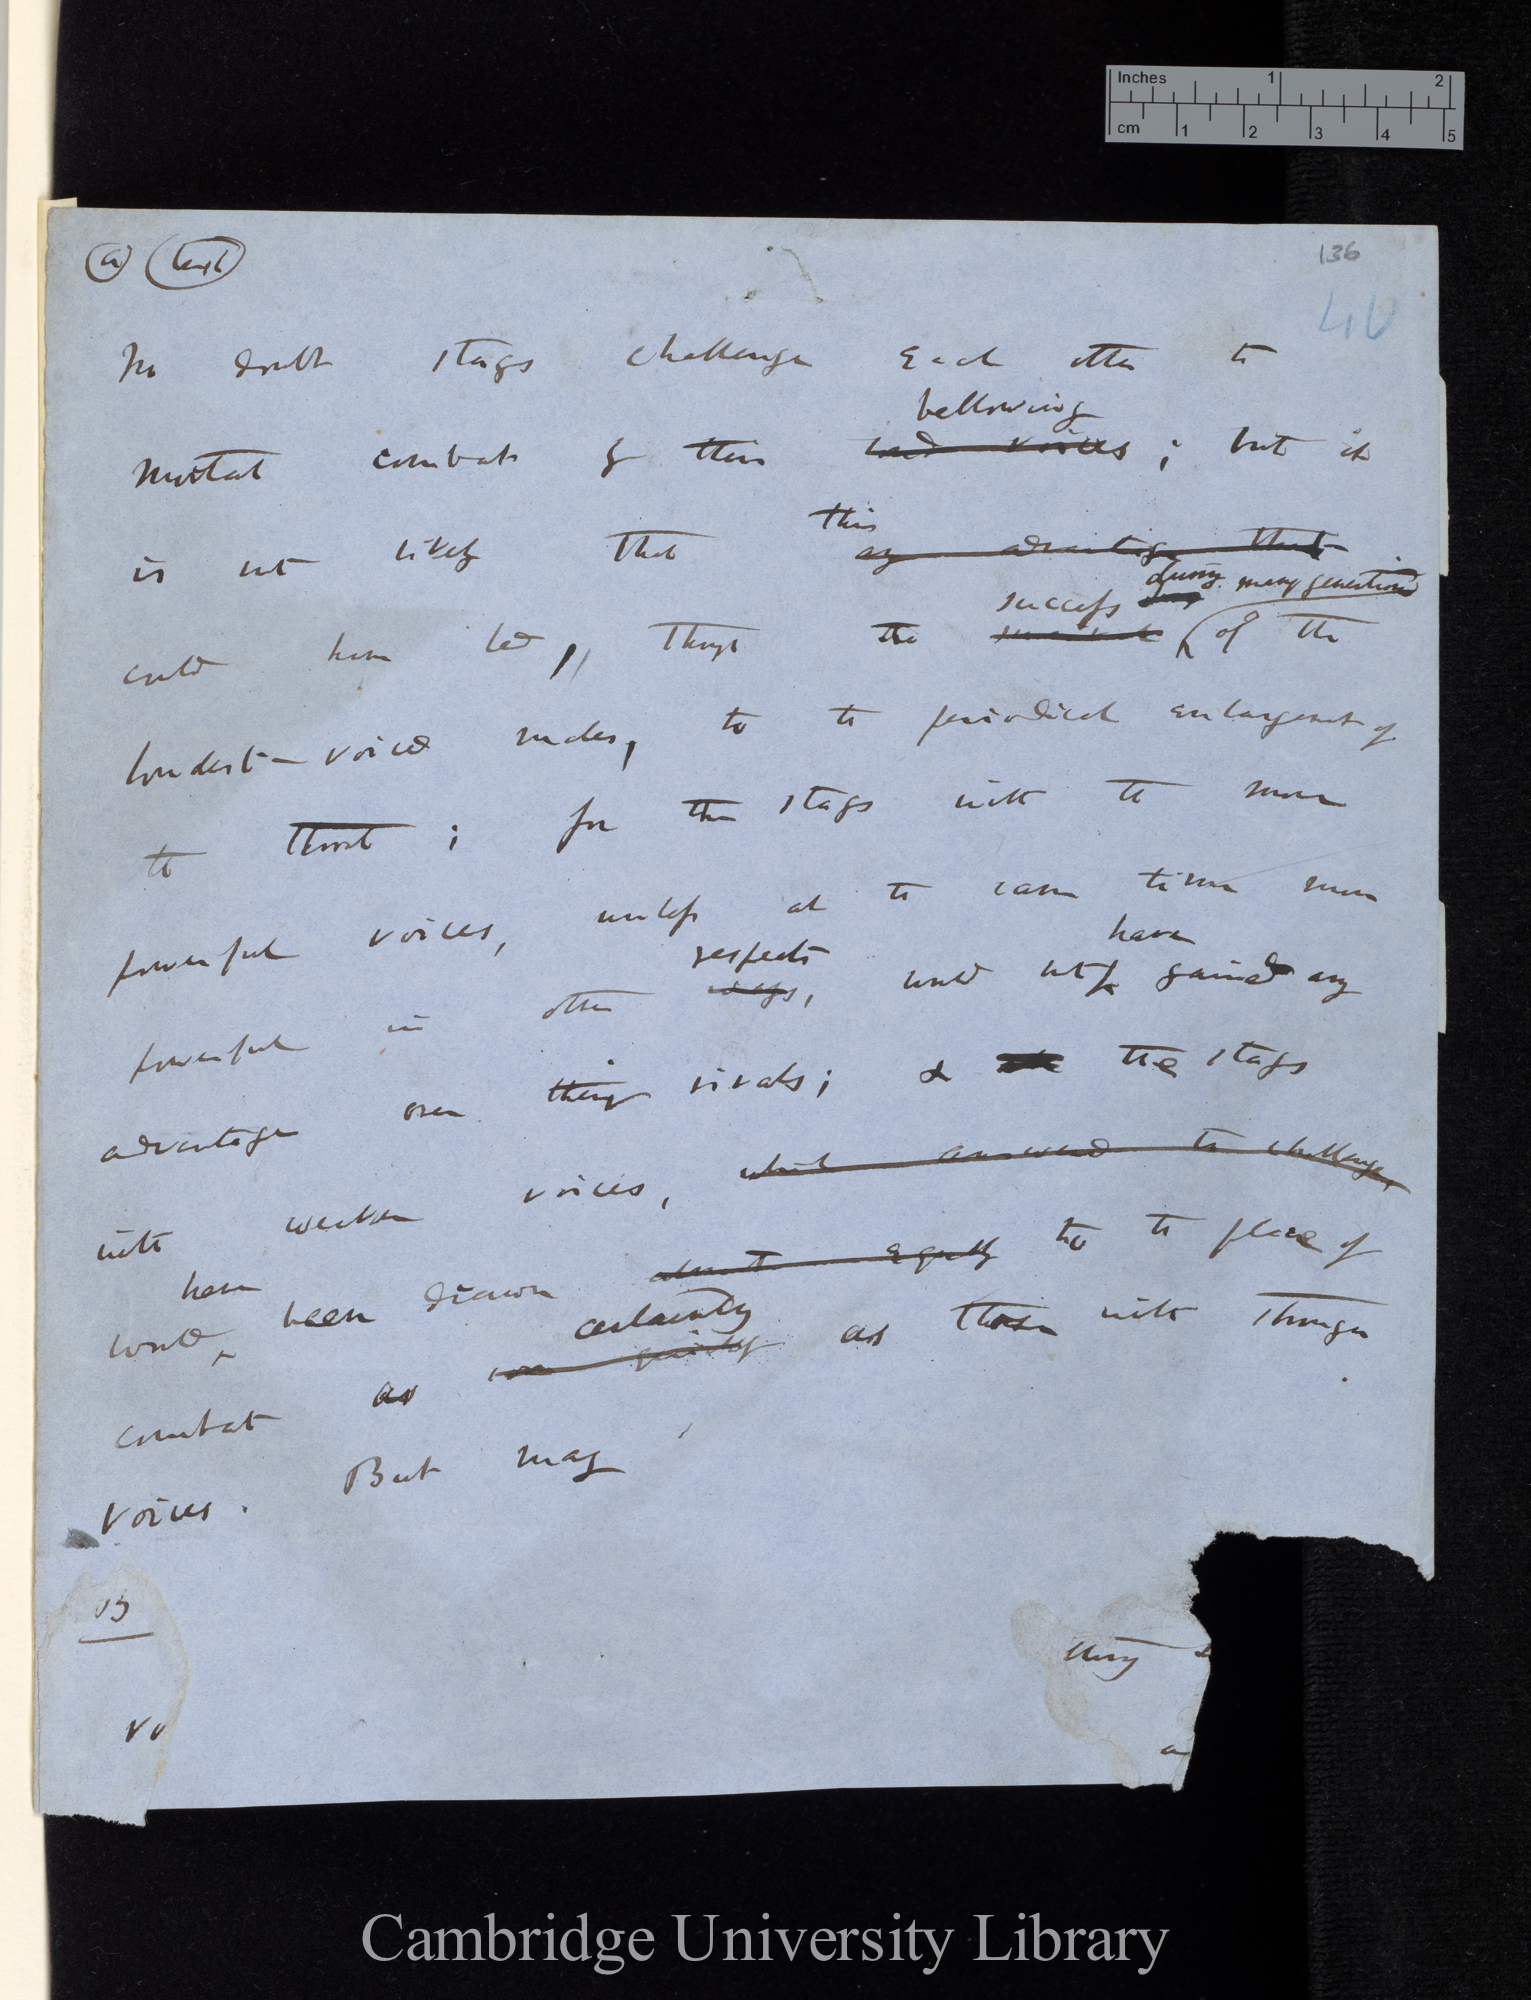 Inches 1 2
cm 1 2 3 4 5
(a) (text)
136
No doubt stags challenge each other to
bellowing
mortal combat by their loud voices ; but it
this
is not likely that any advantage that
during many generations
success
could have led, through the of the
loudest-voiced males, to the periodical enlargement of
the throat ; for the stags with the more
powerful voices, unless at the same time more
respects have
powerful in other ways, would not gained any
advantage over their rivals; & the stags
with weaker voices, which answered the challenge,
have
would been drawn almost equally to the place of
certainty
combat as quickly as those with stronger
voices. But may
Cambridge University Library